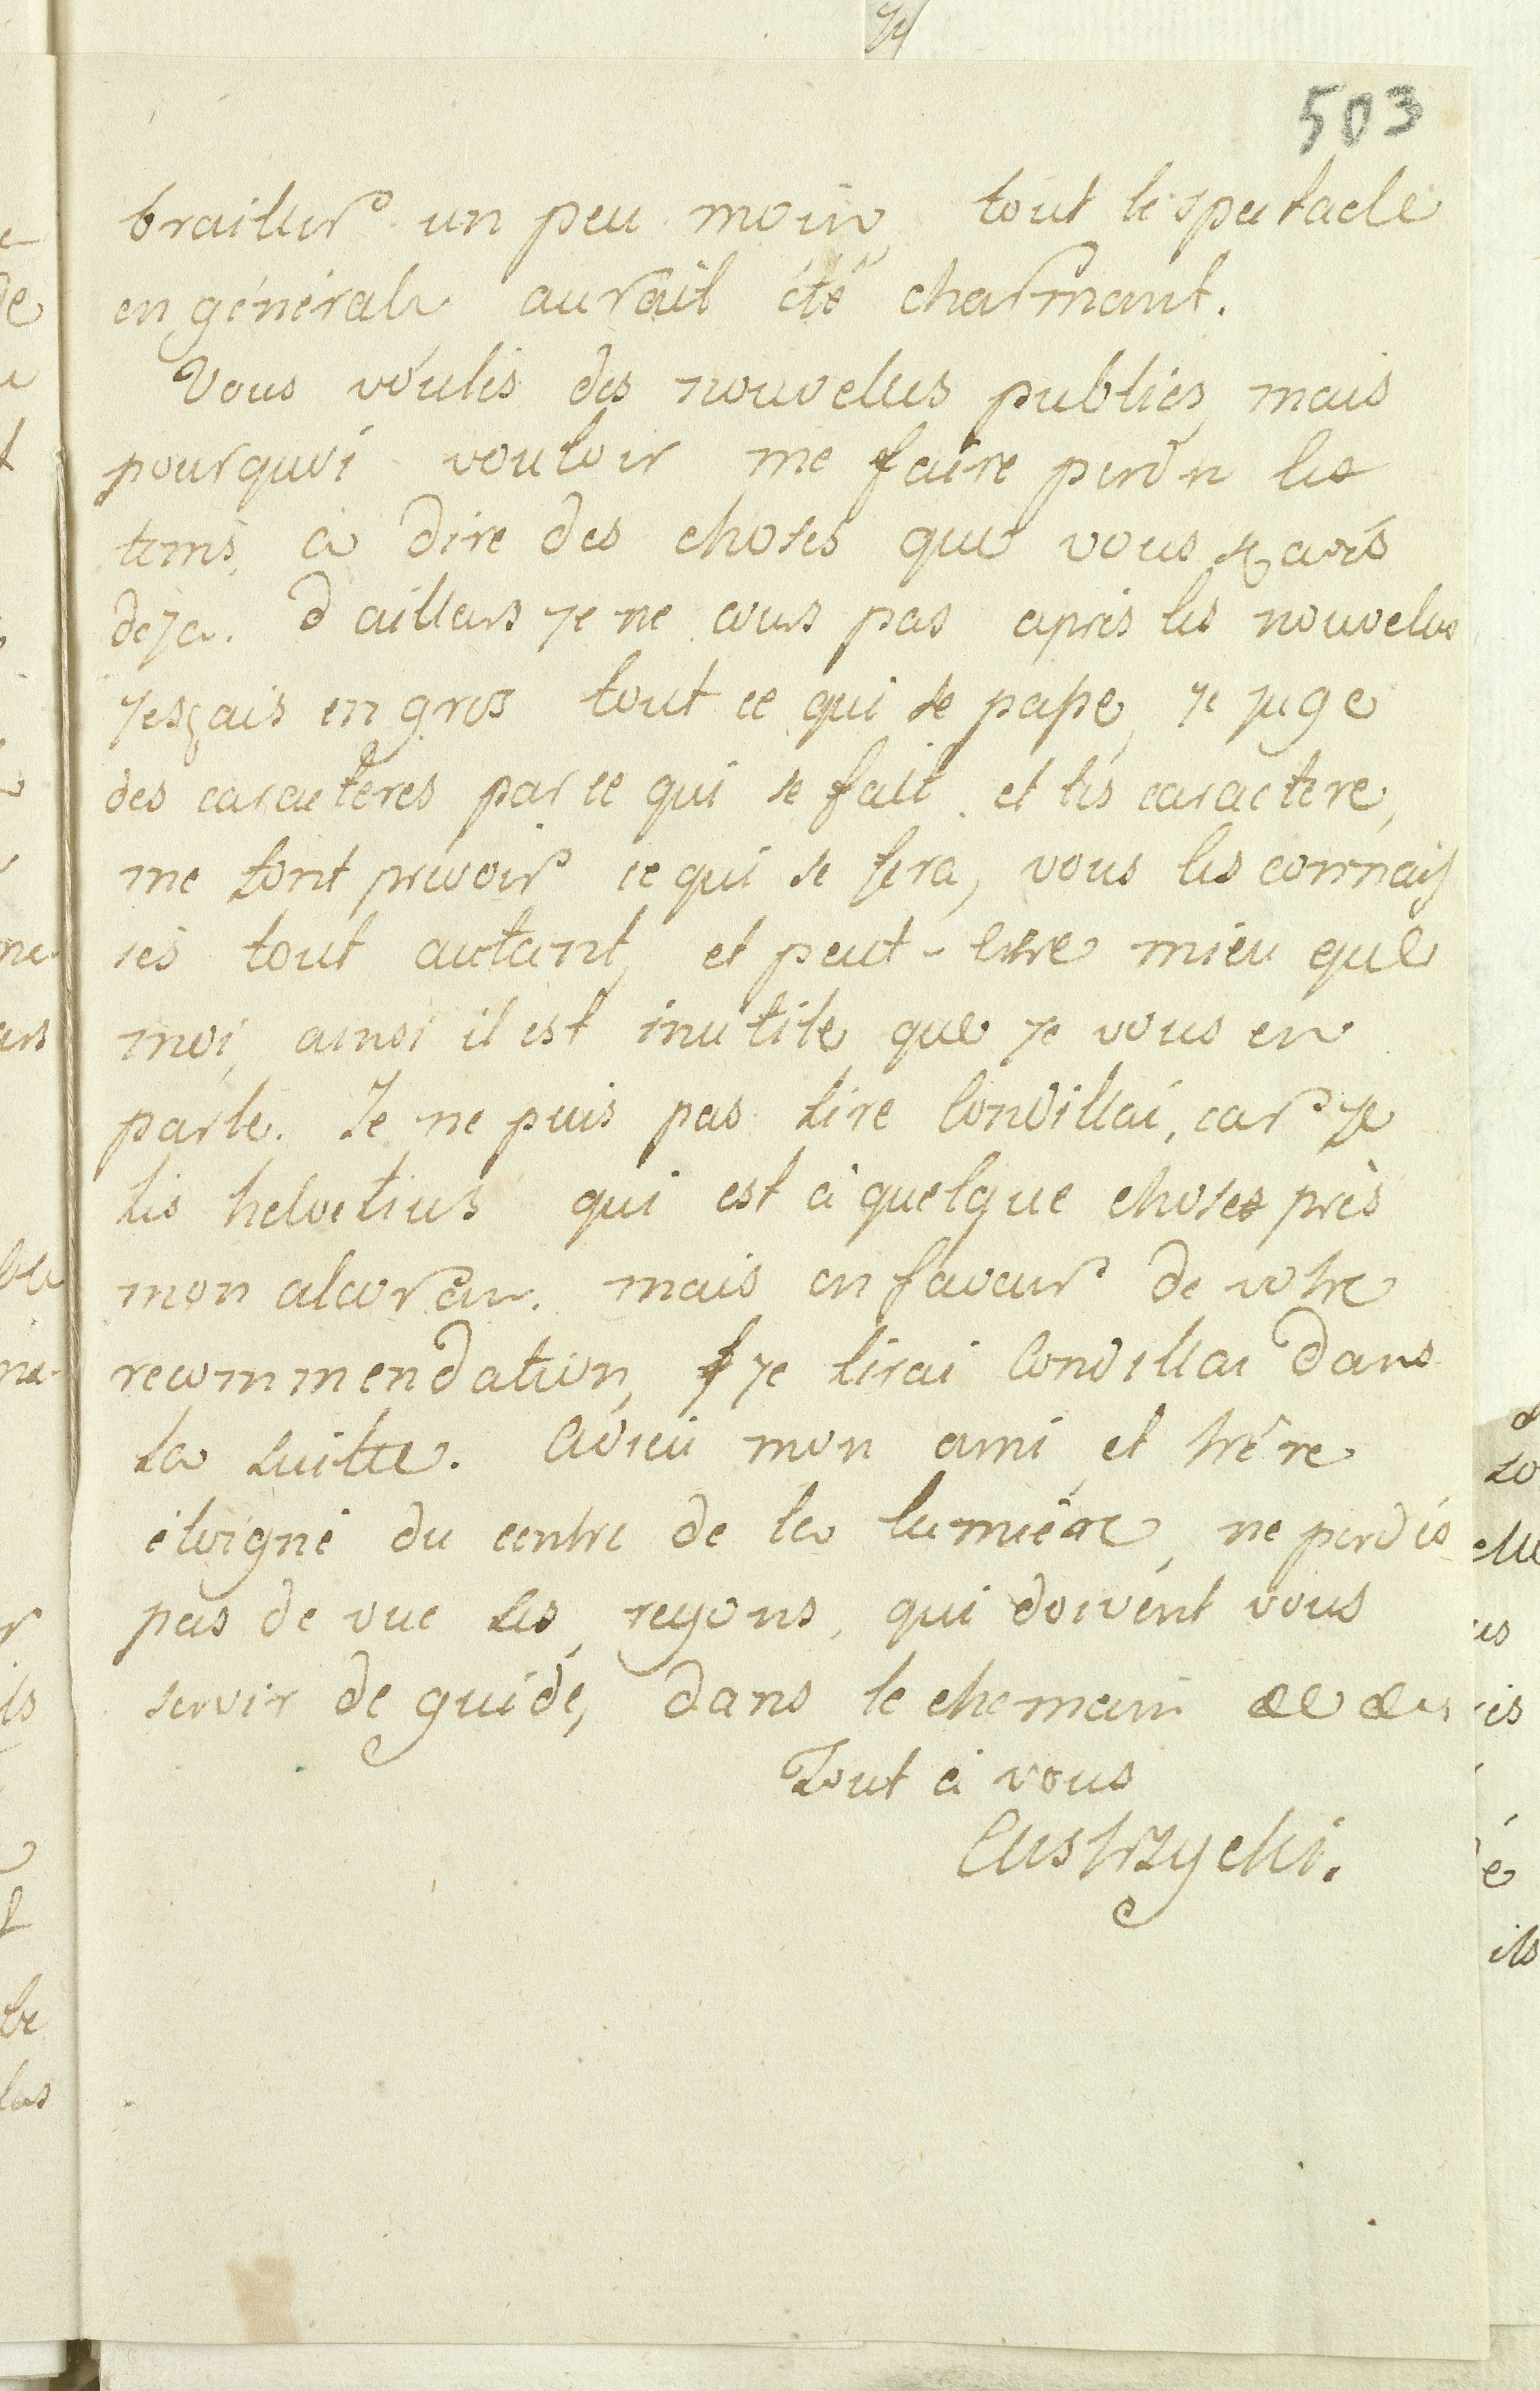 503
brailler un peu moin, tout le spectacle
en générale aurait été charmant.
Vous voulés des nouvelles publies, mais
pourquoi vouloir me faire perdre les
tems, à dire des choses que vous sçavés
deja. d'ailleurs je ne cours pas après les nouvelles
je sçais en gros tout ce qui se passe, je juge
des caractères par ce qui se fait et les caractere,
me font prevoir ce qui se fera, vous les connais
sés tout autant, et peut-etre mieu que
moi, ainsi il est inutile que je vous en
parle. Je ne puis pas lire Condillai, car je
lis helvetius qui est à quelque choses près
mon alcoran. mais en faveur de votre
recommendation, je lirai Condillai dans
la suitte. Adieu mon ami et frère
éloigné du centre de la lumière, ne perdés
pas de vue les reyons, qui doivent vous
servir de guide, dans le chemain
Tout à vous
Custrzycki.